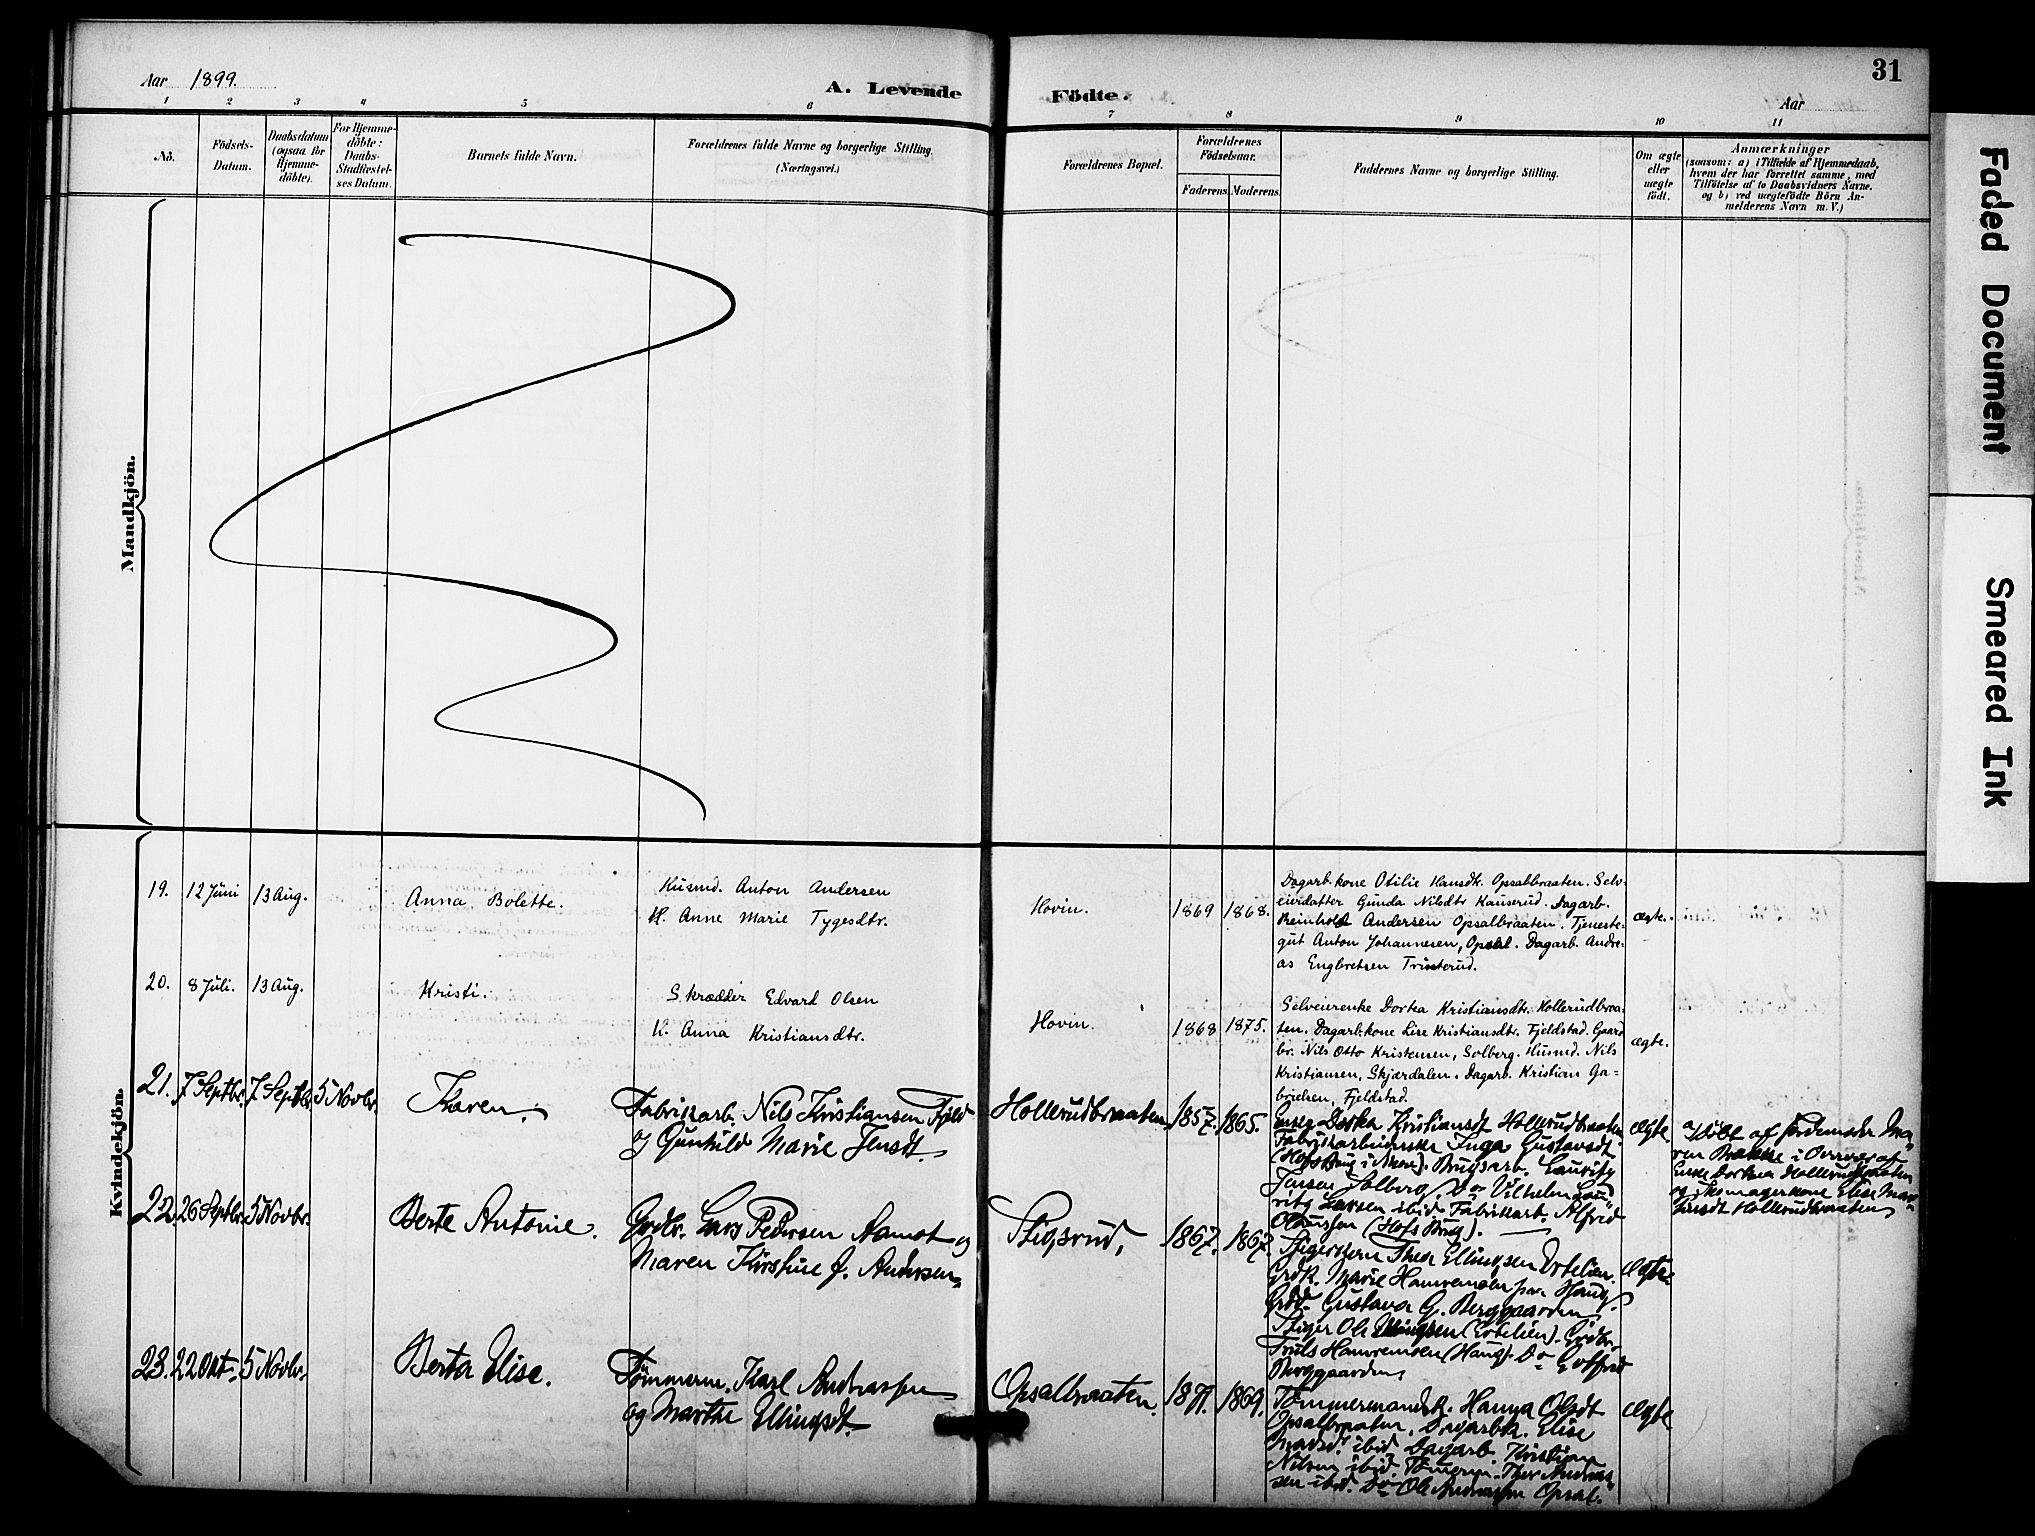 Aar 1899.
A. Levende
Födte.
Aar
31
1 2 3 4 5 6 7 8 9 10 11
No.
Födsels-
Datum.
Daabsdatum
(ogsaa for
Hjemme-
döbte).
For Hjemme-
döbte:
Daabs-
Stadfæstel-
ses Datum.
Barnets fulde Navn.
Forældrenes fulde Navne og borgerlige Stilling.
(Næringsvei.)
Forældrenes Bopæl.
Forældrenes
Födselsaar.
Faderens. Moderens.
Faddernes Navne og borgerlige Stilling.
Om ægte
eller
uægte
födt.
Anmærkninger
(saasom: a) i Tilfælde af Hjemmedaab,
hvem der har forrettet samme, med
Tilföielse af to Daabsvidners Navne.
og b) ved uægtefödte Börn An-
melderens Navn m. V.)
Mandkjön.
Kvindekjön.
19. 12 Juni 13 Aug.
Anna Bolette.
Husmd. Anton Andersen
K. Anne Marie Tygesdtr.
Hovin.
1869 1868.
Dagarb.kone Otilie Hansdtr. Opsalbraaten. Selv-
eierdatter Gunda Nilsdtr Kauserud. Dagarb.
Reinholdt Andersen Opsalbraaten. Tjeneste-
gut Anton Johannesen, Opsal. Dagarb. Andre-
as Engbretsen Trusterud.
ægte.
20. 8 Juli. 13 Aug.
Kristi.
Skrædder Edvard Olsen
K. Anna Kristiansdtr.
Hovin.
1868 1875.
Selveierenke Dortea Kristiansdtr. Hollerudbraa-
ten. Dagarb.kone Lise Kristiansdtr. Fjeldstad. Gaard-
br. Nils Otto Kristensen, Solberg. Husmd. Nils
Kristiansen, Skjærdalen. Dagarb. Kristian Ga-
brielsen, Fjeldstad.
ægte.
21. 7 Septbr. 7 Septbr. 5 Novbr.
Karen.
Fabrikarb. Nils Kristiansen Fjeld
og Gunhild Marie Jensdt.
Hollerudbraaten.
1857. 1865.
Dortea Kristiansdt Hollerudbraaten
Fabrikarbeiderske Inga Gustavsdt.
(Hofs Brug i Aadal). Brugsarb. Lauritz
Jensen Solberg. Do Vilhelm Lau-
ritz Larsen ibid. Fabrikarb. Alfred
(Hofs Brug).
Ægte.
a) döbt af Jordemoder Ma-
ren Brække i Overvær af
Enke Dortea Hollerudbraaten
og Skomagerkone Elise Mari
Hollerudbraaten
22. 26 Septbr. 5 Novbr.
Berte Antonie.
Grdbr. Lars Pedersen Aamot og
Maren Kirstine J. Andersen.
Stigsrud.
1867. 1867.
Thea Ellingsen
Grdk. Marie Hansen Haug.
Gustava G. Berggaarden
Ole Ellingsen Grdbr.
Truls (Haug). Do Gotfred
Berggaarden
Ægte.
23. 22 Okt. 5 Novbr.
Berta Elise.
Tömmerm. Karl Andreassen
og Marthe Ellingsdt.
Opsalbraaten.
1871. 1869.
Tömmermandsk. Hanna Olsdt
Opsalbraaten. Dagarbk. Elise
ibid. Dagarb. Kristian
Nilsen ibid. Tömerm. Thor Andreas-
sen ibid. Do Ole Andreassen Opsal.
Ægte
Faded Document
Smeared Ink